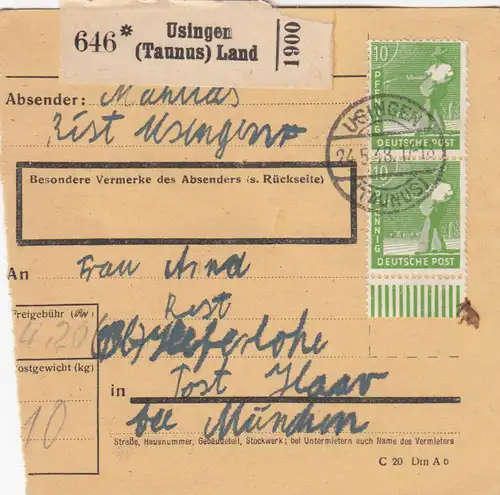 646*
Usingen
(Taunus) Land
1900
10
PFENNIG
DEUTSCHE POST
USINGEN
24.5.48.17-18
(TAUNUS)
10
PFENNIG
DEUTSCHE POST
Absender: Mathias
Usingen
Besondere Vermerke des Absenders (s. Rückseite)
An Frau
Post
Freigebühr
4,20
Postgewicht (kg)
10
in Post Haar
bei München
Straße, Hausnummer, Gebäudeteil, Stockwerk; bei Untermietern auch Name des Vermieters
C 20 Din A 6